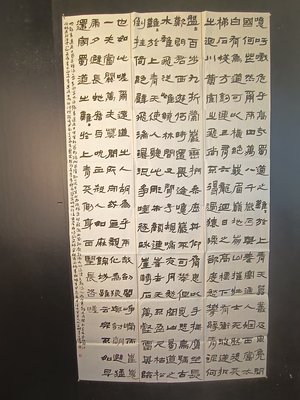 噫吁嚱危乎高哉蜀道之難難於上青天蠶叢及魚鳧開
國何茫然爾來四萬八千歲不與秦塞通人煙西當太
白有鳥道可以橫絕峨眉巔地崩山摧壯士死然後天
梯石棧相鉤連上有六龍回日之高標下有衝波逆折
之迴川黃鶴之飛尚不得過猿猱欲度愁攀援青泥何
盤〻百步九折縈巖巒捫參歷井仰脅息以手撫膺坐長
歎問君西遊何時還畏途巉巖不可攀但見悲鳥號古
木雄飛雌從繞林間又聞子規啼夜月愁空山蜀道之
難〻於上青天使人聽此凋朱顏連峰去天不盈尺枯松
倒挂倚絕壁飛湍瀑流爭喧豗砯崖轉石萬壑雷其險
也如此嗟爾遠道之人胡為乎來哉劍閣崢嶸而崔嵬
一夫當關萬夫莫開所守或匪親化為狼與豺朝避猛
虎夕避長蛇磨牙吮血殺人如麻錦城雖云樂不如早
還家蜀道之難〻於上青天側身西望長咨嗟